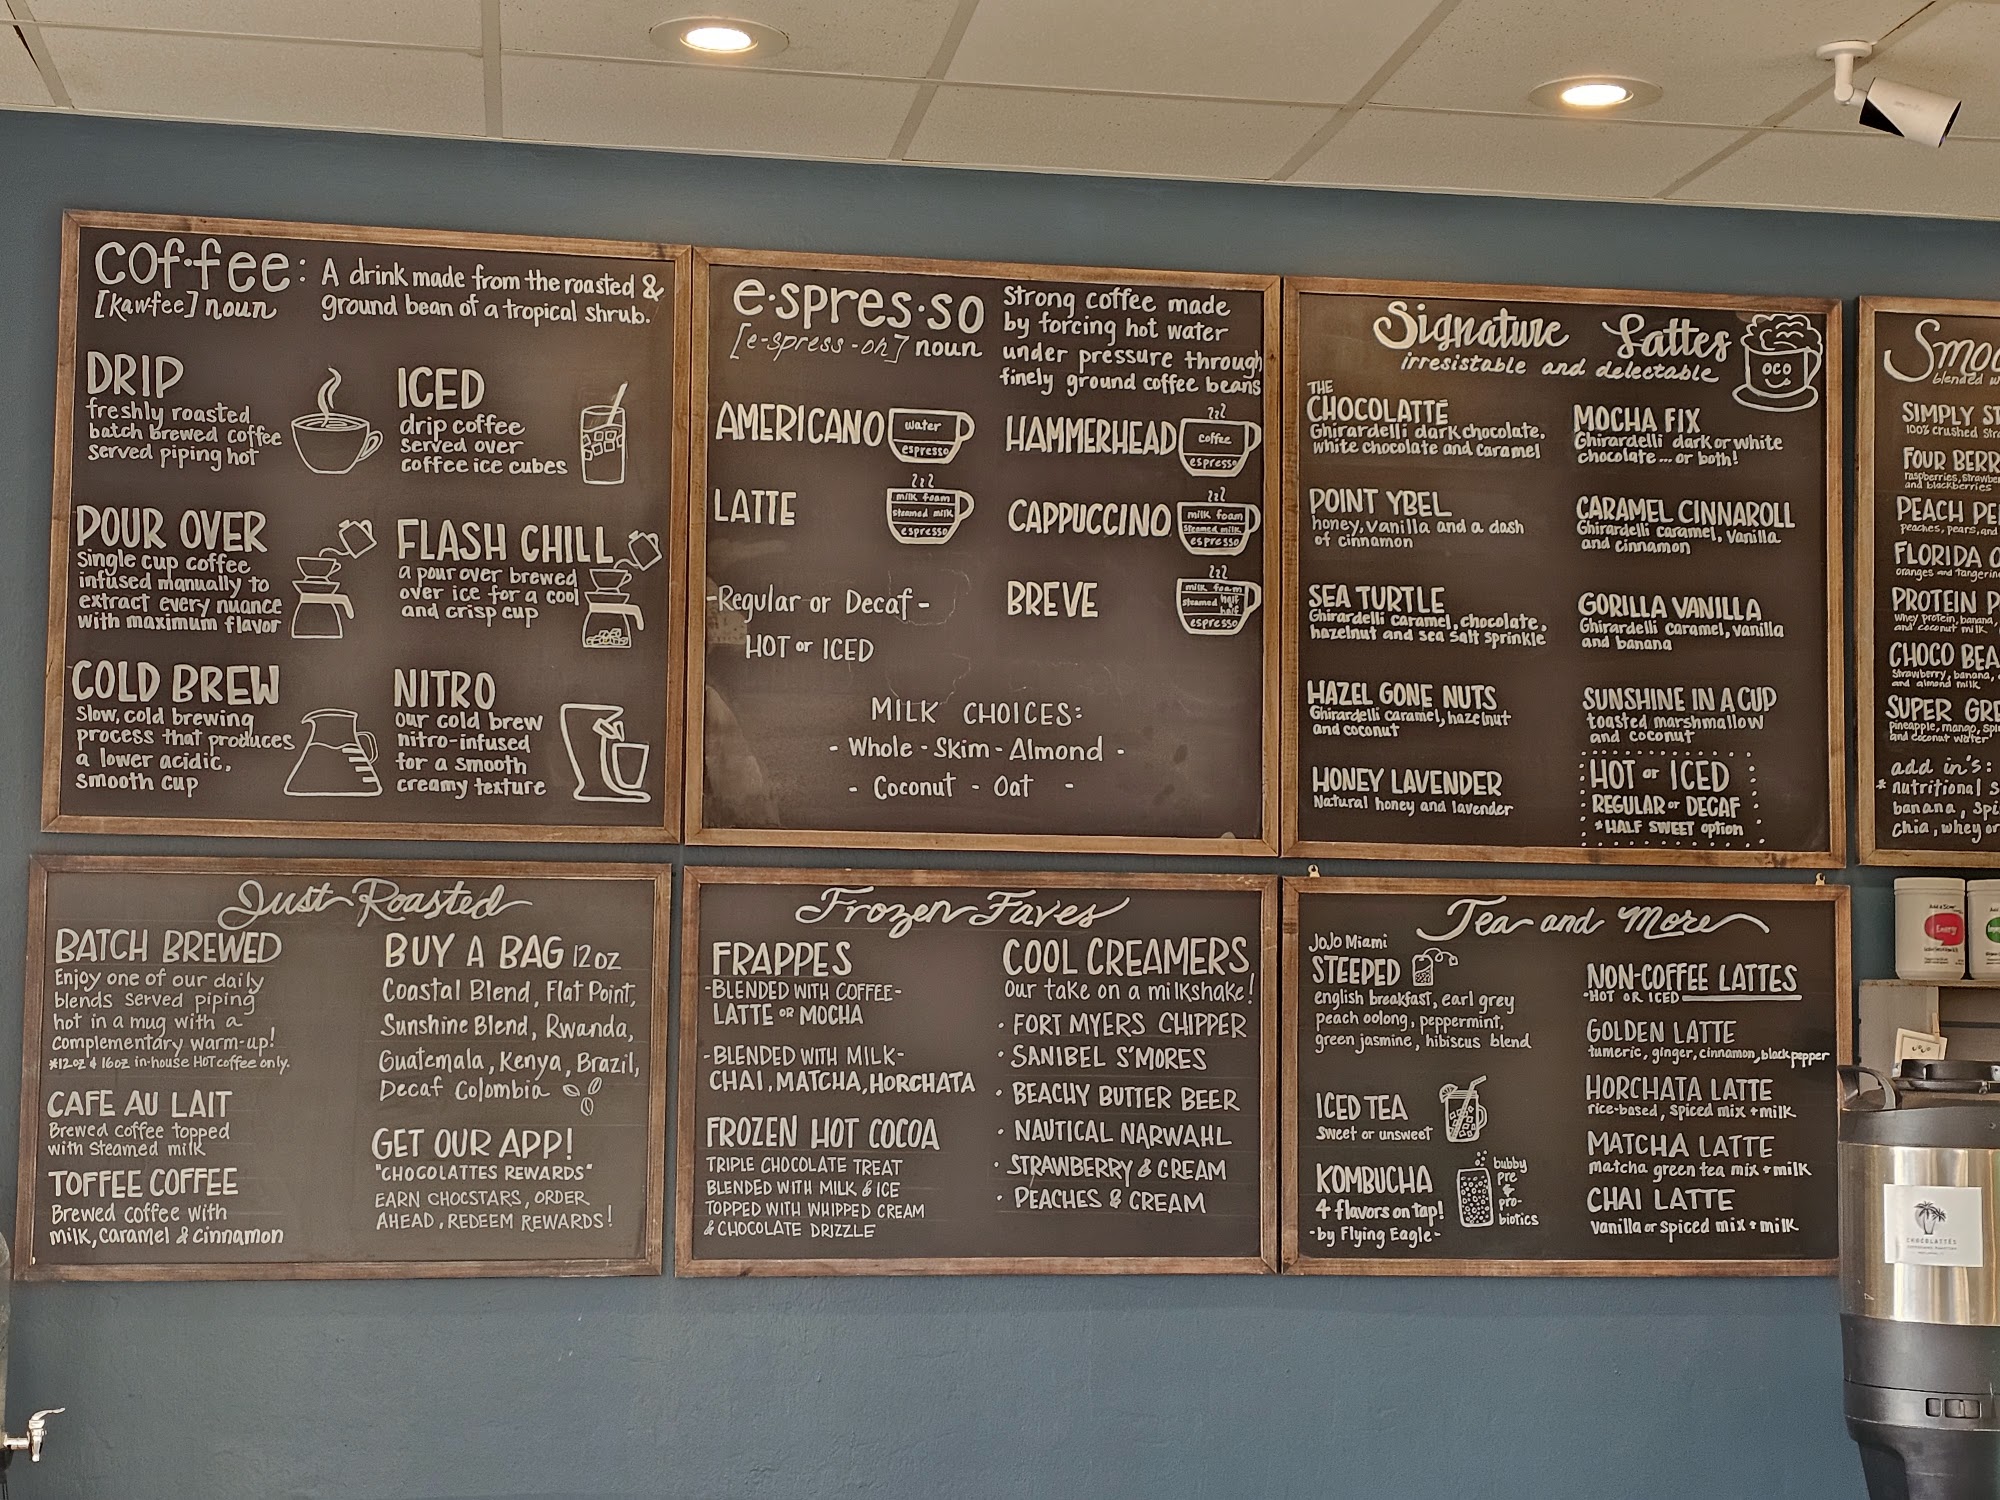 cof·fee:
[kaw-fee] noun
A drink made from the roasted &
ground bean of a tropical shrub.
DRIP
freshly roasted
batch brewed coffee
served piping hot
ICED
drip coffee
served over
coffee ice cubes
POUR OVER
Single cup coffee
infused manually to
extract every nuance
with maximum flavor
FLASH CHILL
a pour over brewed
over ice for a cool
and crisp cup
COLD BREW
Slow, cold brewing
process that produces
a lower acidic,
smooth cup
NITRO
our cold brew
nitro-infused
for a smooth
creamy texture
e·spres·so
[e-spress-oh] noun
Strong coffee made
by forcing hot water
under pressure through
finely ground coffee beans
AMERICANO
water
espresso
HAMMERHEAD
coffee
espresso
LATTE
milk foam
steamed milk
espresso
CAPPUCCINO
milk foam
steamed milk
espresso
BREVE
milk foam
steamed half half
espresso
-Regular or Decaf-
HOT or ICED
MILK CHOICES:
- Whole - Skim - Almond -
- Coconut - Oat -
Signature Lattes
irresistable and delectable
OCO
THE
CHOCOLATTÉ
Ghirardelli dark chocolate,
white chocolate and caramel
MOCHA FIX
Ghirardelli dark or white
chocolate... or both!
POINT YBEL
honey, vanilla and a dash
of cinnamon
CARAMEL CINNAROLL
Ghirardelli caramel, vanilla
and cinnamon
SEA TURTLE
Ghirardelli caramel, chocolate,
hazelnut and sea salt sprinkle
GORILLA VANILLA
Ghirardelli caramel, vanilla
and banana
HAZEL GONE NUTS
Ghirardelli caramel, hazelnut
and coconut
SUNSHINE IN A CUP
toasted marshmallow
and coconut
HONEY LAVENDER
Natural honey and lavender
HOT or ICED
REGULAR or DECAF
*HALF SWEET option
Smoo
blended w
SIMPLY ST
100% crushed stra
FOUR BERR
raspberries, strawber
and blackberries
PEACH PE
peaches, pears, and
FLORIDA O
oranges and tangerin
PROTEIN P
whey protein, banana,
and coconut milk
CHOCO BEA
strawberry, banana,
and almond milk
SUPER GRE
pineapple, mango, spi
and coconut water
add in's:
* nutritional s
banana, spi
chia, whey or
Just Roasted
BATCH BREWED
Enjoy one of our daily
blends served piping
hot in a mug with a
complementary warm-up!
*12oz & 16oz in-house HOT coffee only.
CAFE AU LAIT
Brewed coffee topped
with steamed milk
TOFFEE COFFEE
Brewed coffee with
milk, caramel & cinnamon
BUY A BAG 12 OZ
Coastal Blend, Flat Point,
Sunshine Blend, Rwanda,
Guatemala, Kenya, Brazil,
Decaf Colombia
GET OUR APP!
"CHOCOLATTES REWARDS"
EARN CHOCSTARS, ORDER
AHEAD, REDEEM REWARDS!
Frozen Faves
FRAPPES
-BLENDED WITH COFFEE-
LATTE OR MOCHA
-BLENDED WITH MILK-
CHAI, MATCHA, HORCHATA
FROZEN HOT COCOA
TRIPLE CHOCOLATE TREAT
BLENDED WITH MILK & ICE
TOPPED WITH WHIPPED CREAM
& CHOCOLATE DRIZZLE
COOL CREAMERS
Our take on a milkshake!
· FORT MYERS CHIPPER
· SANIBEL S'MORES
· BEACHY BUTTER BEER
· NAUTICAL NARWAHL
· STRAWBERRY & CREAM
· PEACHES & CREAM
Tea and More
JoJo Miami
STEEPED
english breakfast, earl grey
peach oolong, peppermint,
green jasmine, hibiscus blend
ICED TEA
Sweet or unsweet
KOMBUCHA
4 flavors on tap!
-by Flying Eagle-
bubby
pre
+
pro-
biotics
NON-COFFEE LATTES
-HOT OR ICED
GOLDEN LATTE
tumeric, ginger, cinnamon, black pepper
HORCHATA LATTE
rice-based, spiced mix + milk
MATCHA LATTE
matcha green tea mix + milk
CHAI LATTE
vanilla or spiced mix + milk
Energy
CHOCOLATTÉS